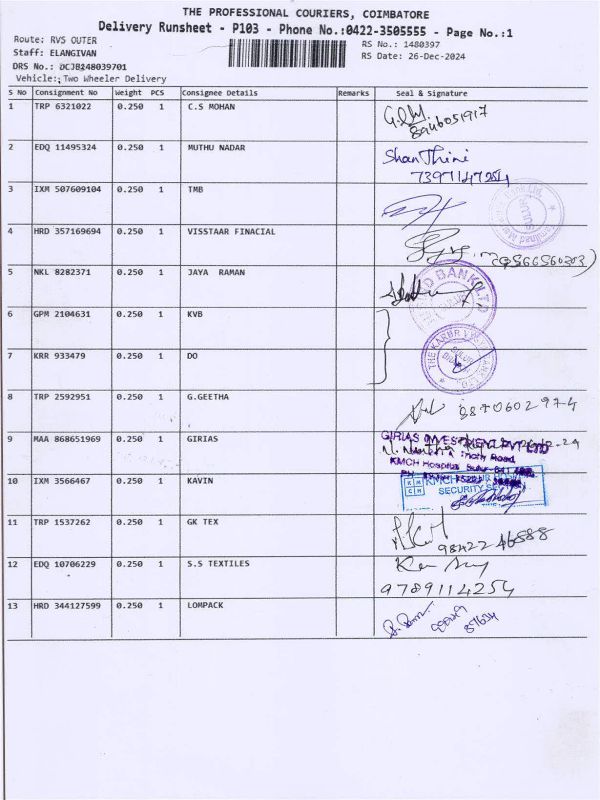 THE PROFESSIONAL COURIERS, COIMBATORE
Delivery Runsheet - P103 - Phone No.:0422-3505555 - Page No.:1
Route: RVS OUTER
RS No.: 1480397
Staff: ELANGIVAN
RS Date: 26-Dec-2024
DRS No.: DCJB248039701
Vehicle:;Two Wheeler Delivery
S No Consignment No Weight PCS Consignee Details Remarks Seal & Signature
1 TRP 6321022 0.250 1 C.S MOHAN
8946051917
2 EDQ 11495324 0.250 1 MUTHU NADAR ShanThini
7397147254
3 IXM 507609104 0.250 1 TMB
SULUR
4 HRD 357169694 0.250 1 VISSTAAR FINACIAL
(9566560303)
5 NKL 8282371 0.250 1 JAYA RAMAN
BANK LTD
6 GPM 2104631 0.250 1 KVB
7 KRR 933479 0.250 1 DO
THE KARUR VYSYA BANK LTD
8 TRP 2592951 0.250 1 G.GEETHA
9 MAA 868651969 0.250 1 GIRIAS
GIRIAS INVESTMENT PVT LTD
Road
KMCH Hospital Sulur-641 402
10 IXM 3566467 0.250 1 KAVIN
KMCH
SECURITY
11 TRP 1537262 0.250 1 GK TEX
98422 46888
12 EDQ 10706229 0.250 1 S.S TEXTILES
9789114254
13 HRD 344127599 0.250 1 LOMPACK